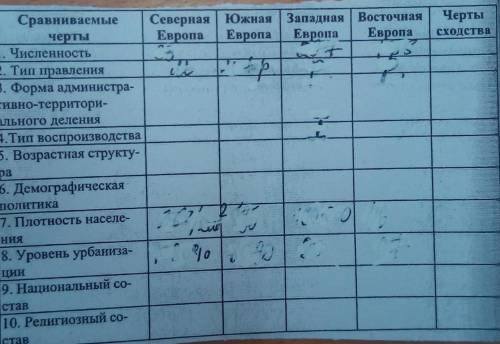 Сравниваемые Северная Южная Западная Восточная Черты
черты Европа Европа Европа Европа сходства
1. Численность
2. Тип правления
3. Форма администра-
тивно-территори-
ального деления
4.Тип воспроизводства
5. Возрастная структу-
ра
6. Демографическая
политика
7. Плотность населе-
ния
8. Уровень урбаниза-
ции
9. Национальный со-
став
10. Религиозный со-
став